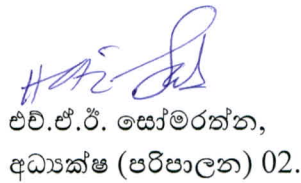 එච්.ඒ.ඊ. සෝමරත්න,
අධ්‍යක්ෂ (පරිපාලන) 02.